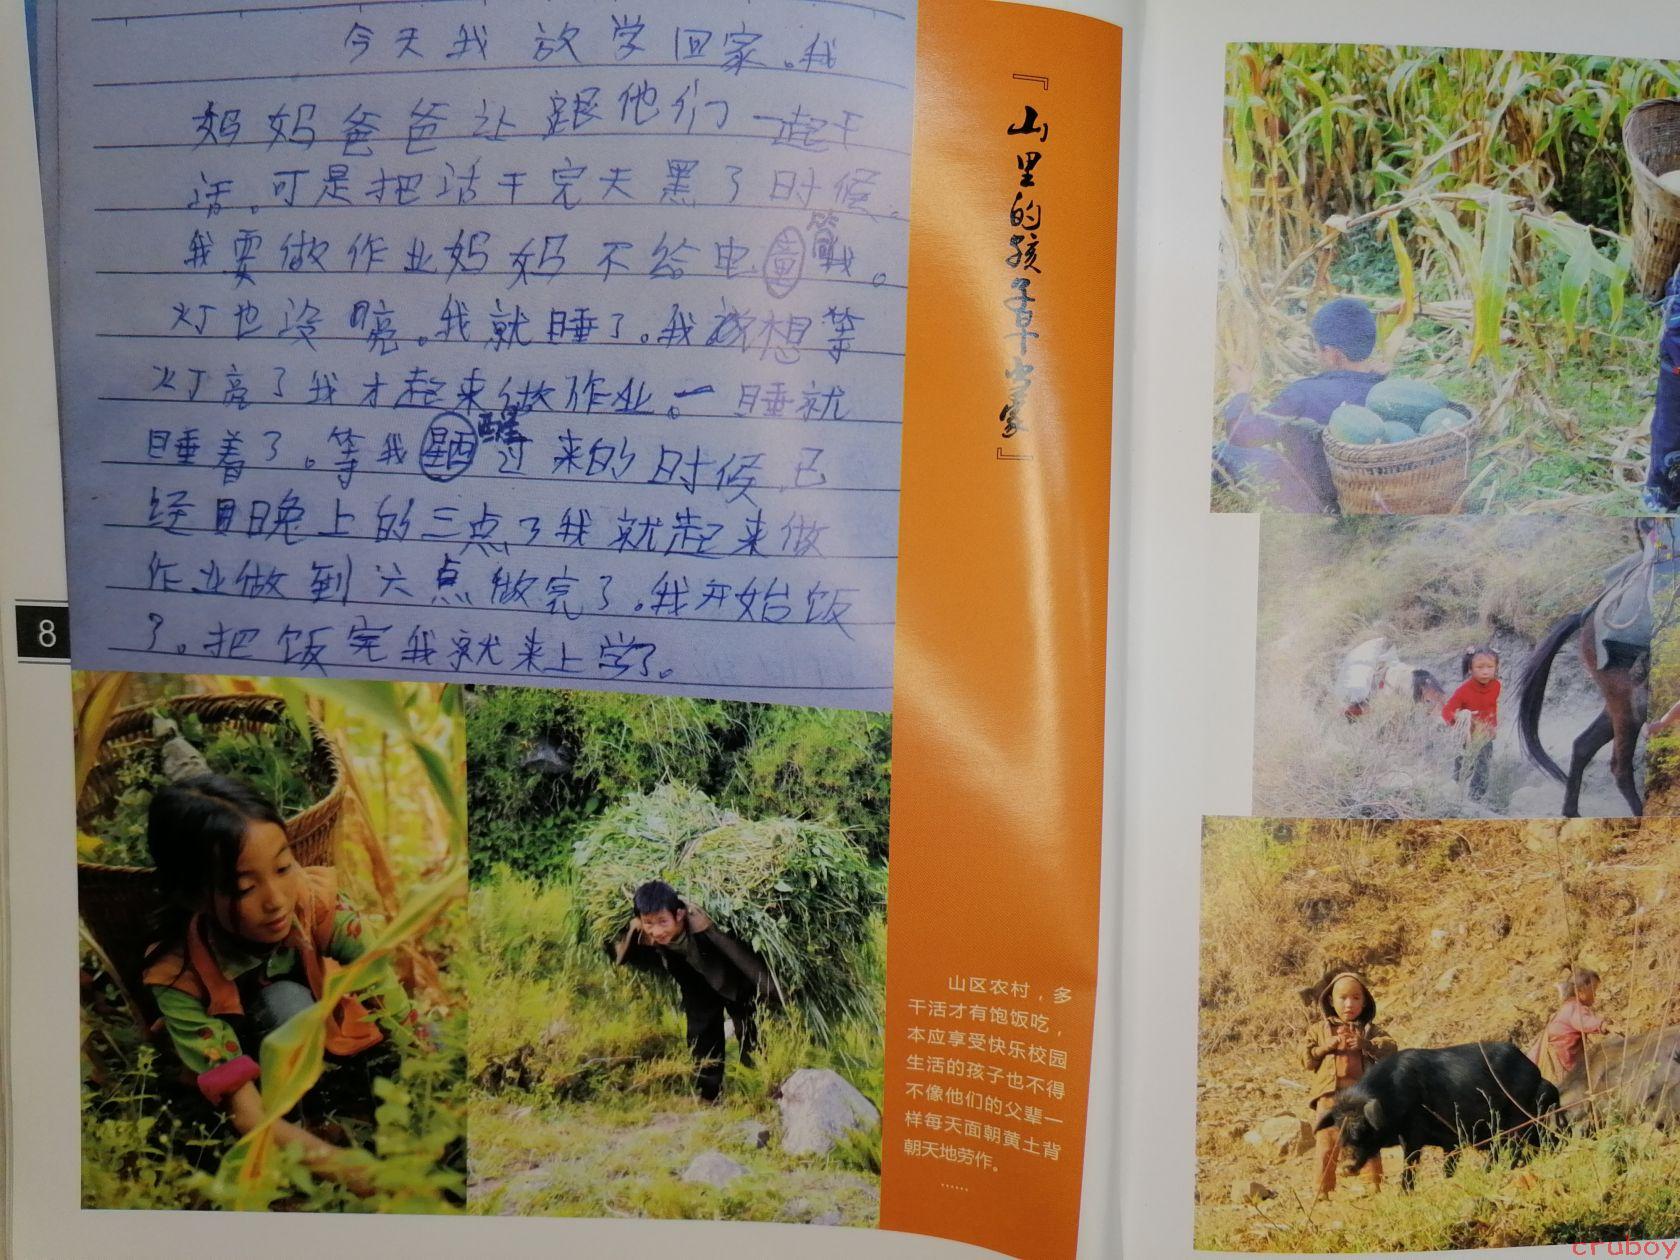 今天我放学回家。我
妈妈爸爸让跟他们一起干
活。可是把活干完天黑了时候。
我要做作业妈妈不给电筒我。
灯也没亮。我就睡了。我想等
灯亮了我才起来做作业。一睡就
睡着了。等我醒过来的时候已
经晚上的三点了我就起来做
作业做到六点做完了。我开始饭
了。把饭完我就来上学了。
8
『山里的孩子草上蒙』
山区农村，多
干活才有饱饭吃，
本应享受快乐校园
生活的孩子也不得
不像他们的父辈一
样每天面朝黄土背
朝天地劳作。
……
cruboy